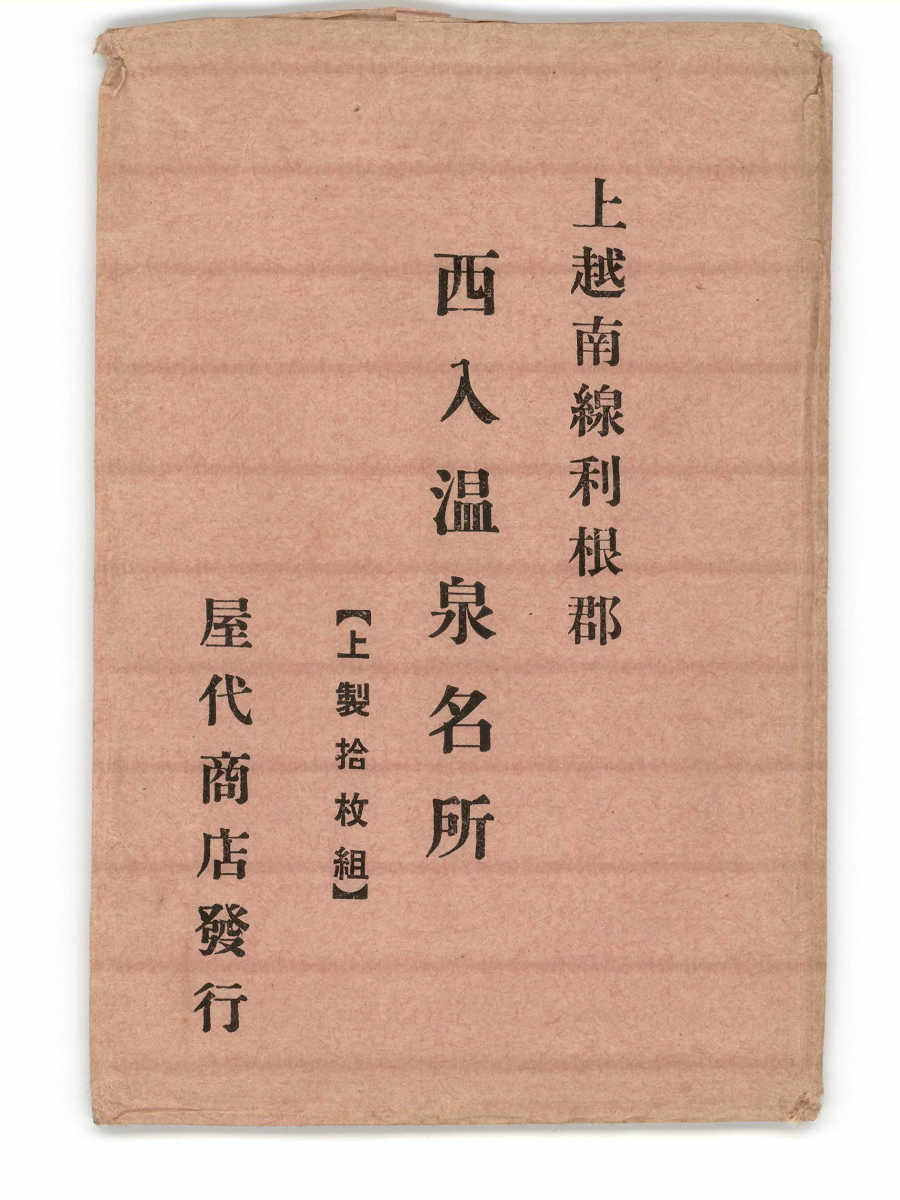 上越南線利根郡
西入温泉名所
【上製拾枚組】
屋代商店發行